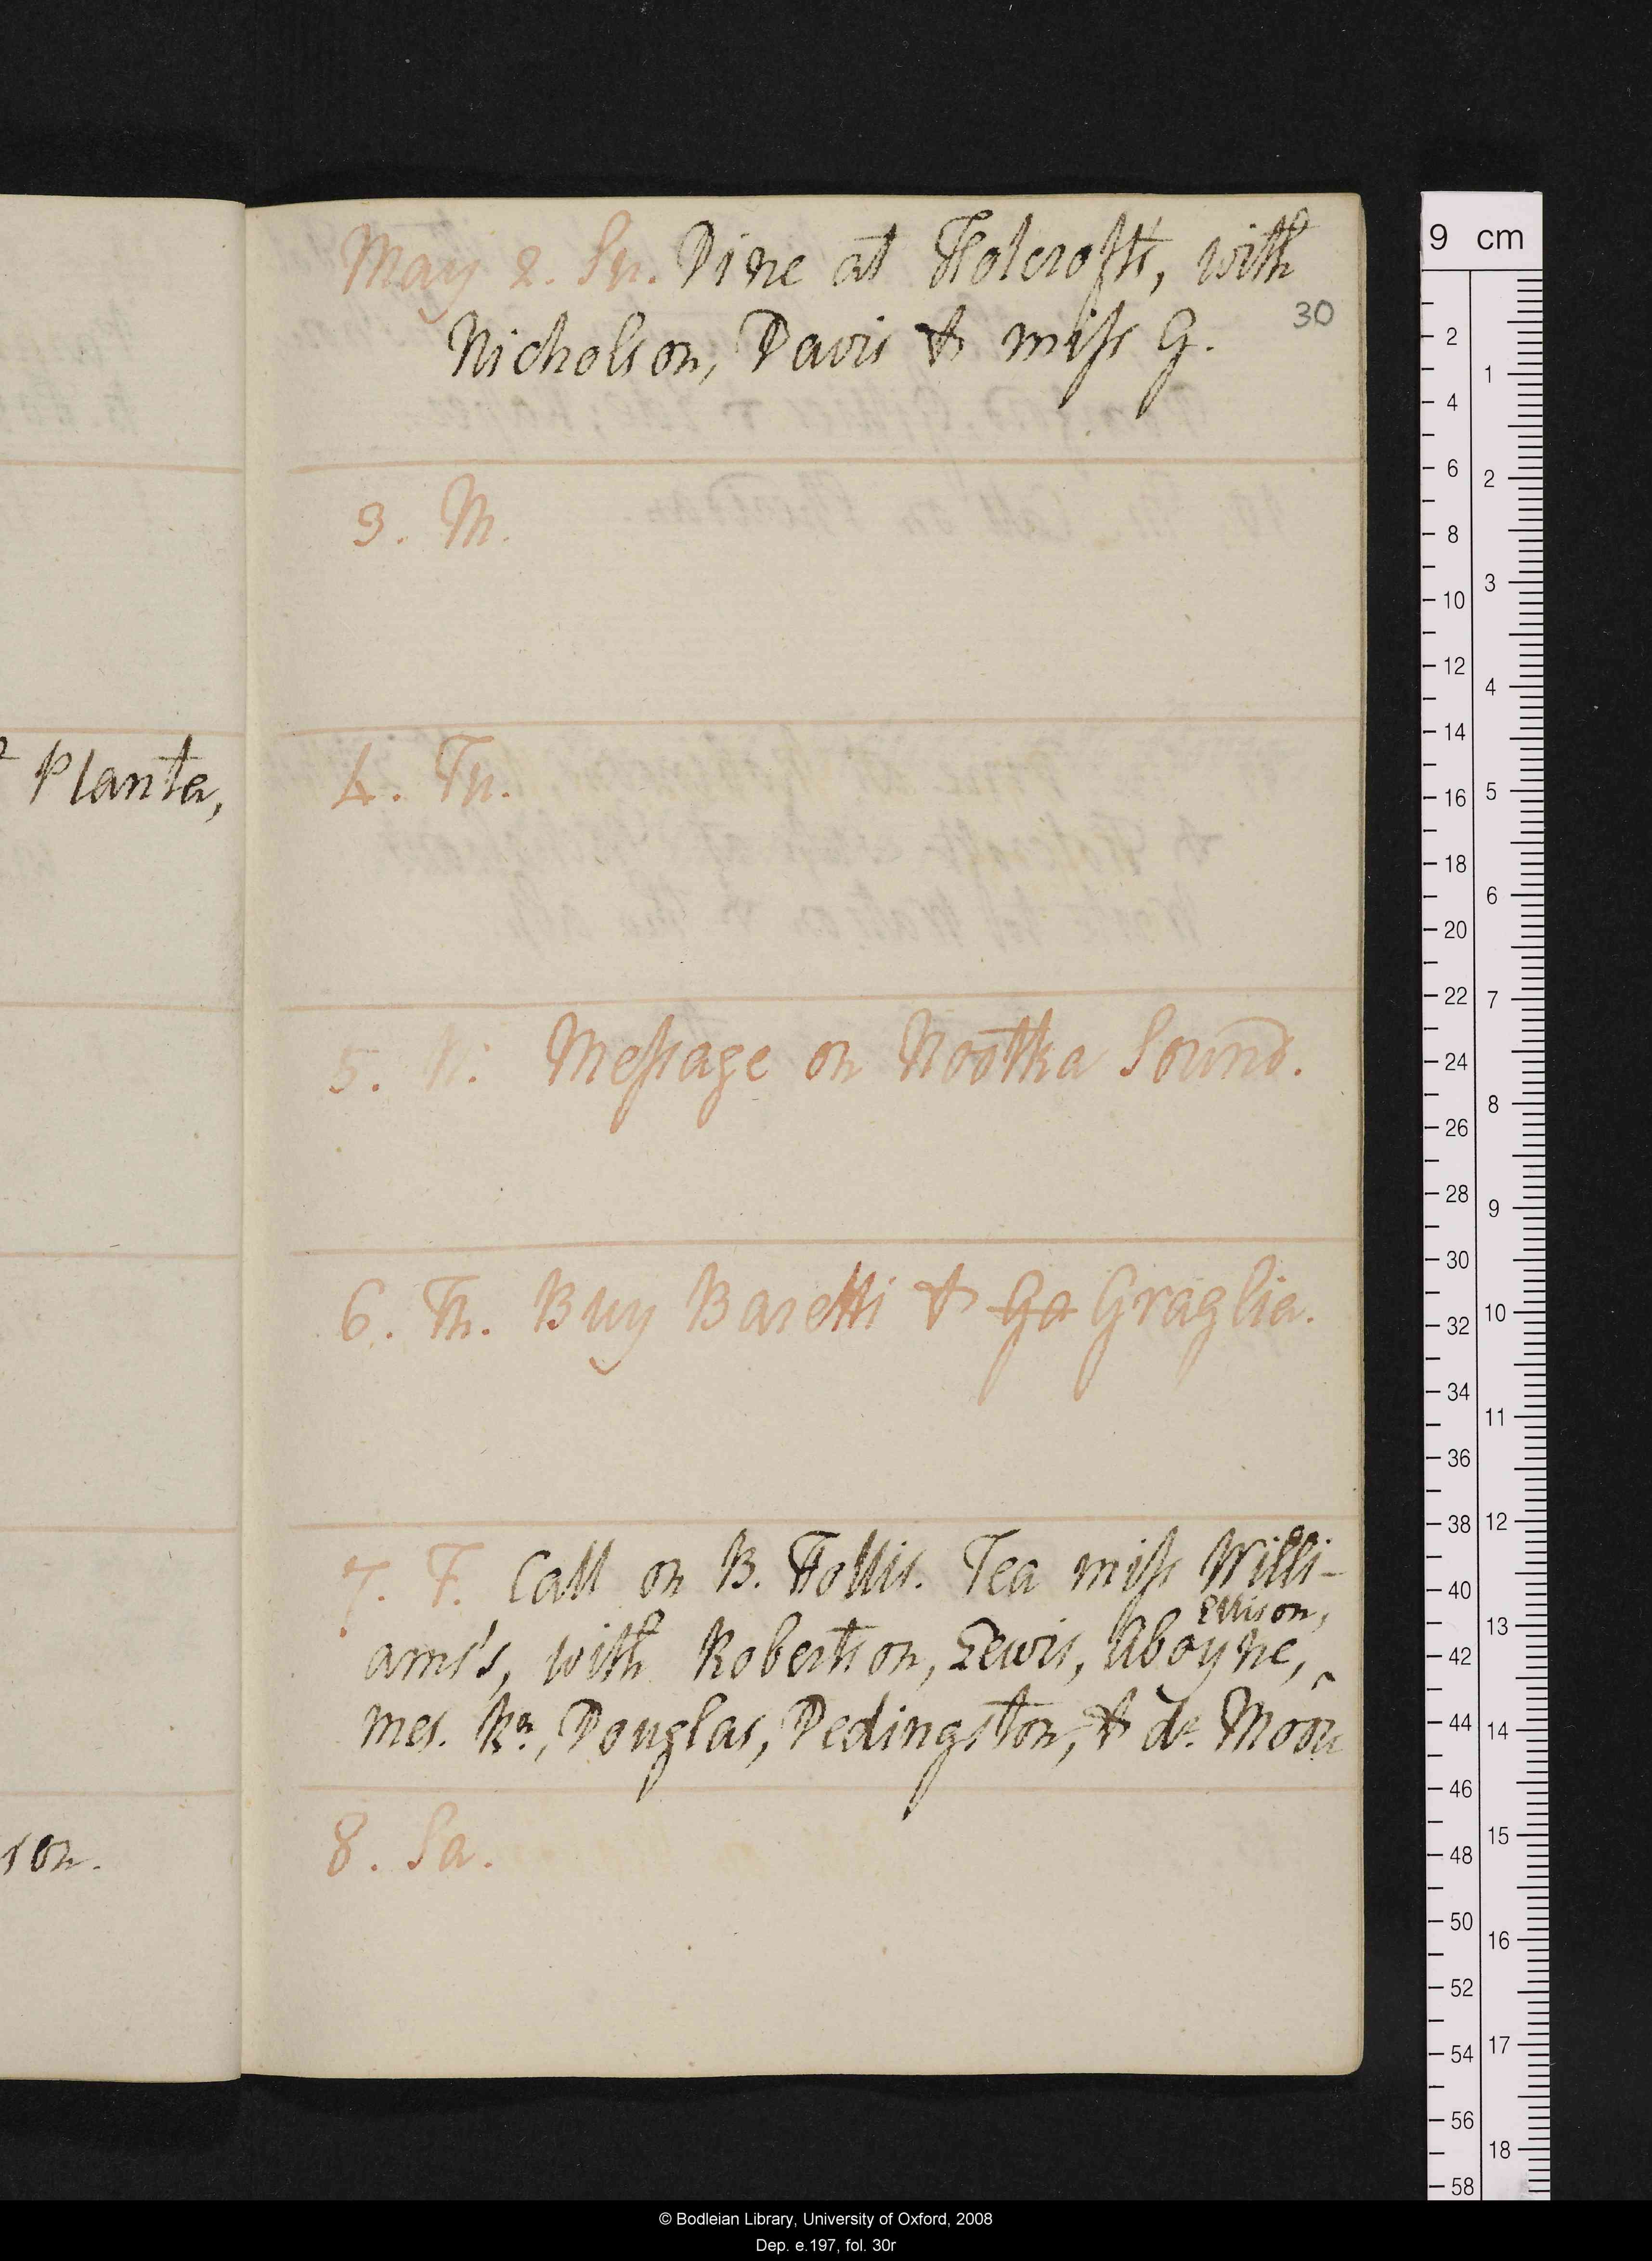 May 2. Su. Dine at Holcroft's, with
Nicholson, Davis & miſs G.
30
3. M.
Planta,
4. Tu.
5. W. Meſsage on Nootka Sound.
6. Th. Buy Baretti & Ga Graglia.
7. F. Call on B. Hollis. Tea miſs Willi-
Ellison,
ams's, with Robertson, Lewis, Aboyne, ‸
mes. Rn, Douglas, Pedingston, & dr. Moor
son.
8. Sa.
9 cm
2 4 6 8 10 12 14 16 18 20 22 24 26 28 30 32 34 36 38 40 42 44 46 48 50 52 54 56 58
1 2 3 4 5 6 7 8 9 10 11 12 13 14 15 16 17 18
© Bodleian Library, University of Oxford, 2008
Dep. e.197, fol. 30r